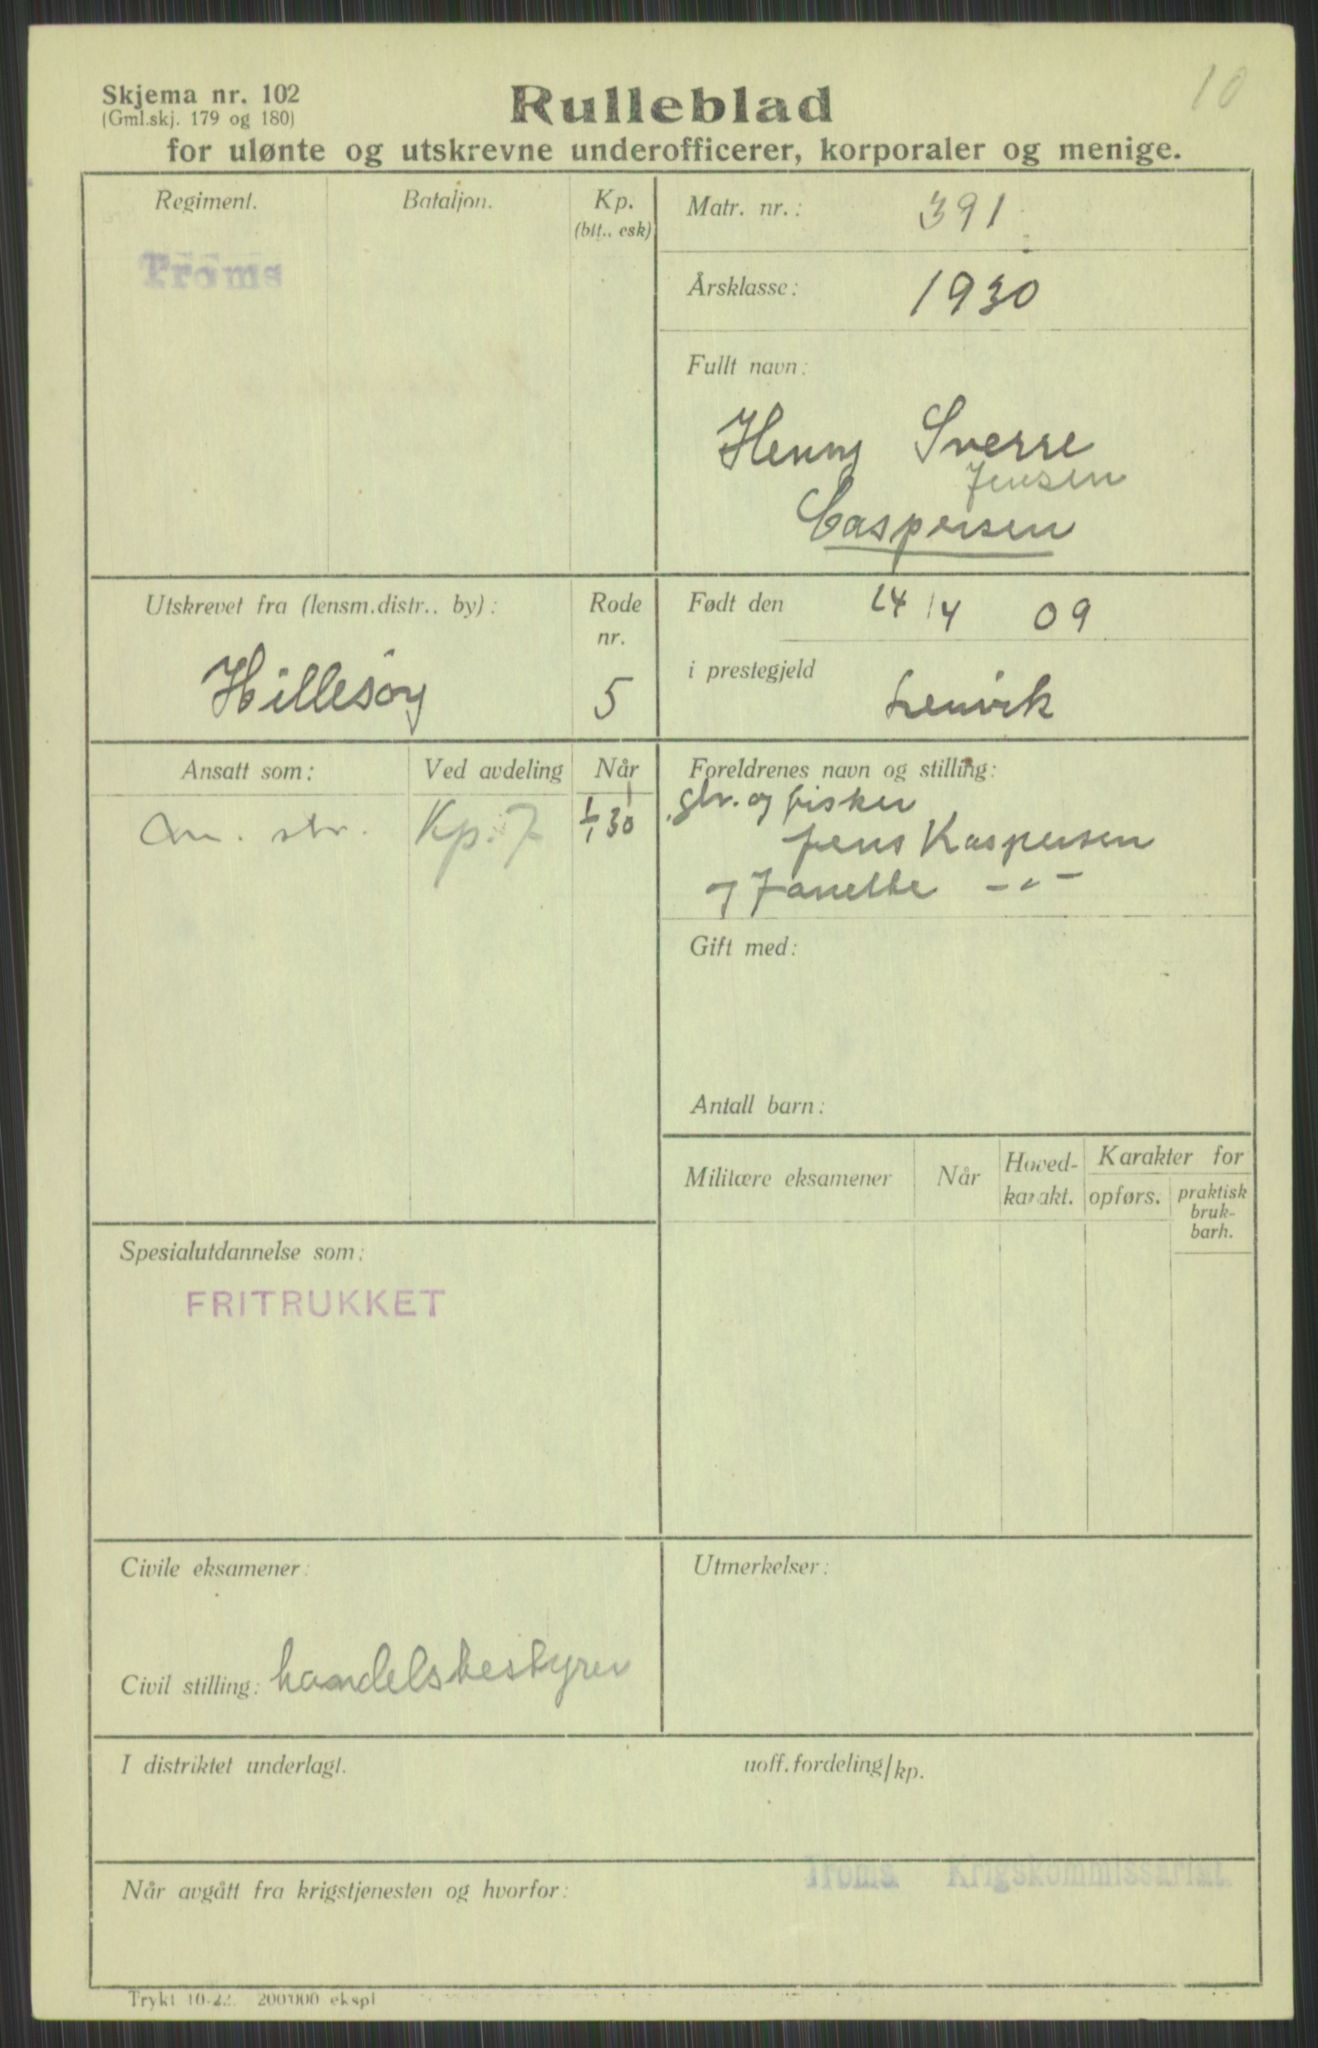 10
Skjema nr. 102
(Gml.skj. 179 og 180)
Rulleblad
for ulønte og utskrevne underofficerer, korporaler og menige.
Regiment.
Bataljon.
Kp.
(btt., esk)
Troms
Matr. nr.: 391
Årsklasse: 1930
Fullt navn:
Henry Sverre
Jensen
Caspersen
Utskrevet fra (lensm.distr., by):
Hillesøy
Rode
nr.
5
Født den 24/4 09
i prestegjeld Lenvik
Ansatt som:
Ved avdeling
Når
str.
Kp. 7
1/1 30
Foreldrenes navn og stilling:
gbr. og fisker
Jens Kaspersen
og Janette -„-
Gift med:
Antall barn:
Militære eksamener
Når
Hoved-
karakt.
Karakter for
opførs.
praktisk
bruk-
barh.
Spesialutdannelse som:
FRITRUKKET
Civile eksamener:
Civil stilling: handelsbestyrer
Utmerkelser:
I distriktet underlagt.
uoff.fordeling/kp.
Når avgått fra krigstjenesten og hvorfor:
Troms Krigskommissariat
Trykt 10-22. 200000 ekspl